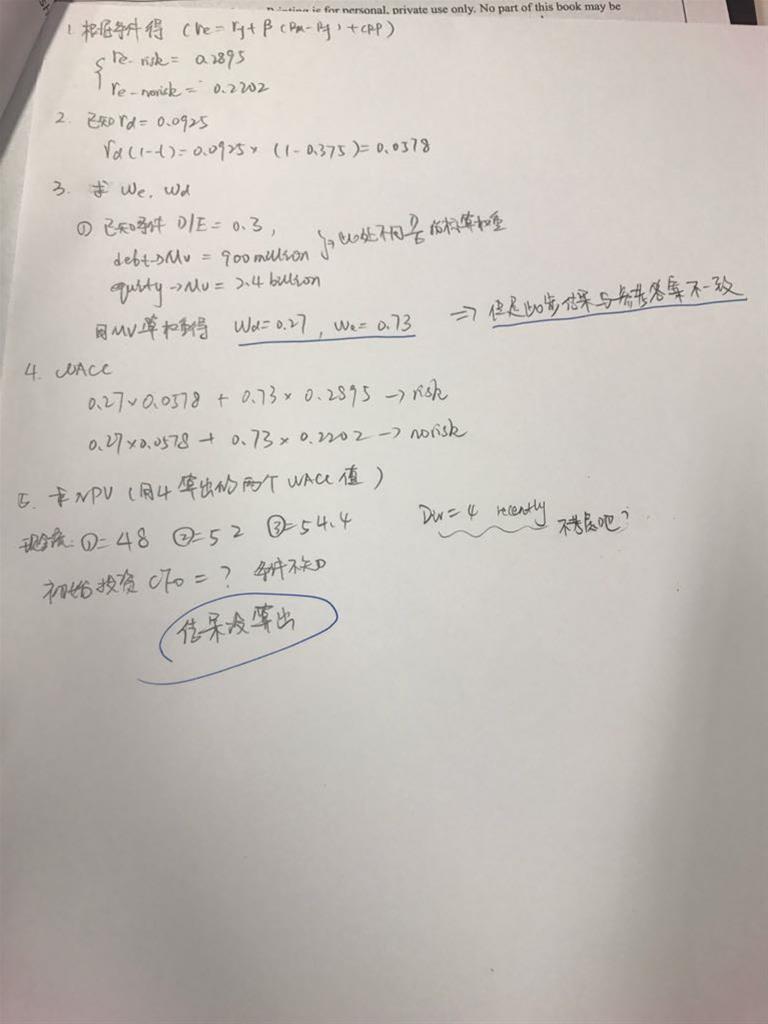 Printing is for personal, private use only. No part of this book may be
1. 根据条件得 (re = rf + β (Rm - Rf) + CRP)
re-risk = 0.2895
re-norisk = 0.2202
2. 已知 rd = 0.0925
rd (1-t) = 0.0925 × (1-0.375) = 0.0578
3. 求 We, Wd
① 已知条件 D/E = 0.3,
debt → MV = 900 million } → 此处不用 D/E 目标算权重
equity → MV = 2.4 billion
用MV算权重得 Wd = 0.27, We = 0.73 => 但是此步结果与参考答案不一致
4. WACC
0.27 × 0.0578 + 0.73 × 0.2895 → risk
0.27 × 0.0578 + 0.73 × 0.2202 → norisk
5. 求NPV (用4算出的两个WACC值)
现金流: ①=48 ②=52 ③=54.4 Div = 4 recently 不考虑吧?
初始投资 CF0 = ? 条件不知
结果没算出